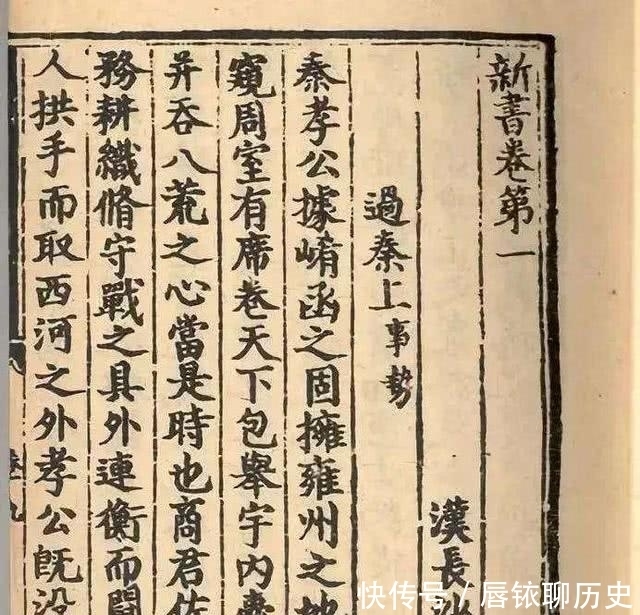 新書卷第一
漢長
過秦上事勢
秦孝公據崤函之固擁雍州之地
窺周室有席卷天下包舉宇内囊
并吞八荒之心當是時也商君佐
務耕織脩守戰之具外連衡而鬭
人拱手而取西河之外孝公既没
快传号/唇铱聊历史